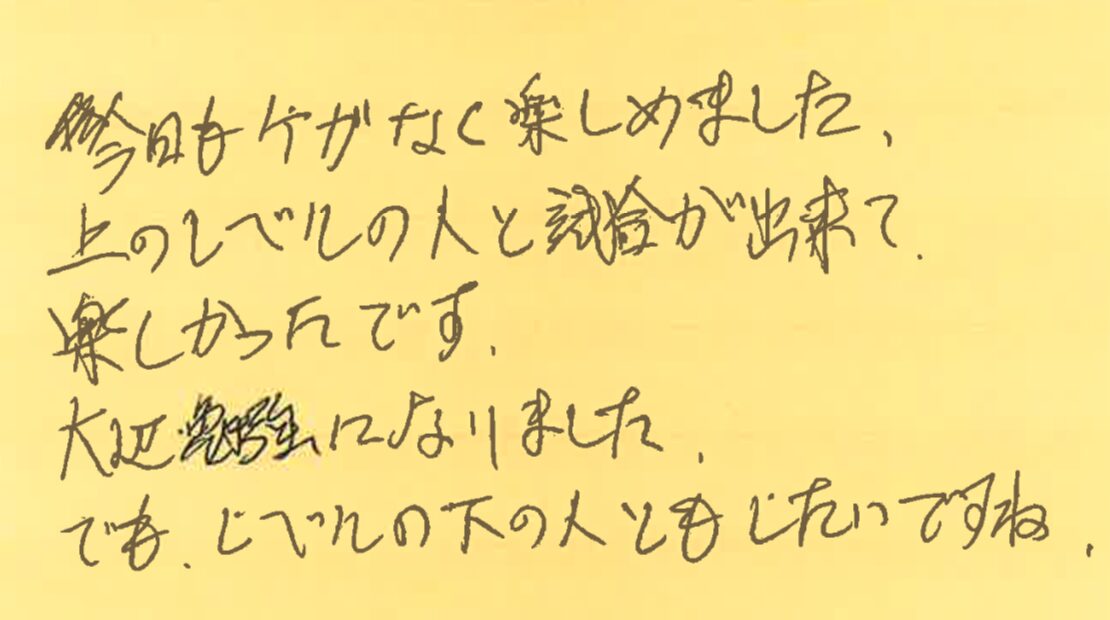 今日もケガなく楽しめました、
上のレベルの人と試合が出来て、
楽しかったです、
大辺勉強になりました、
でも、レベルの下の人ともしたいですね、